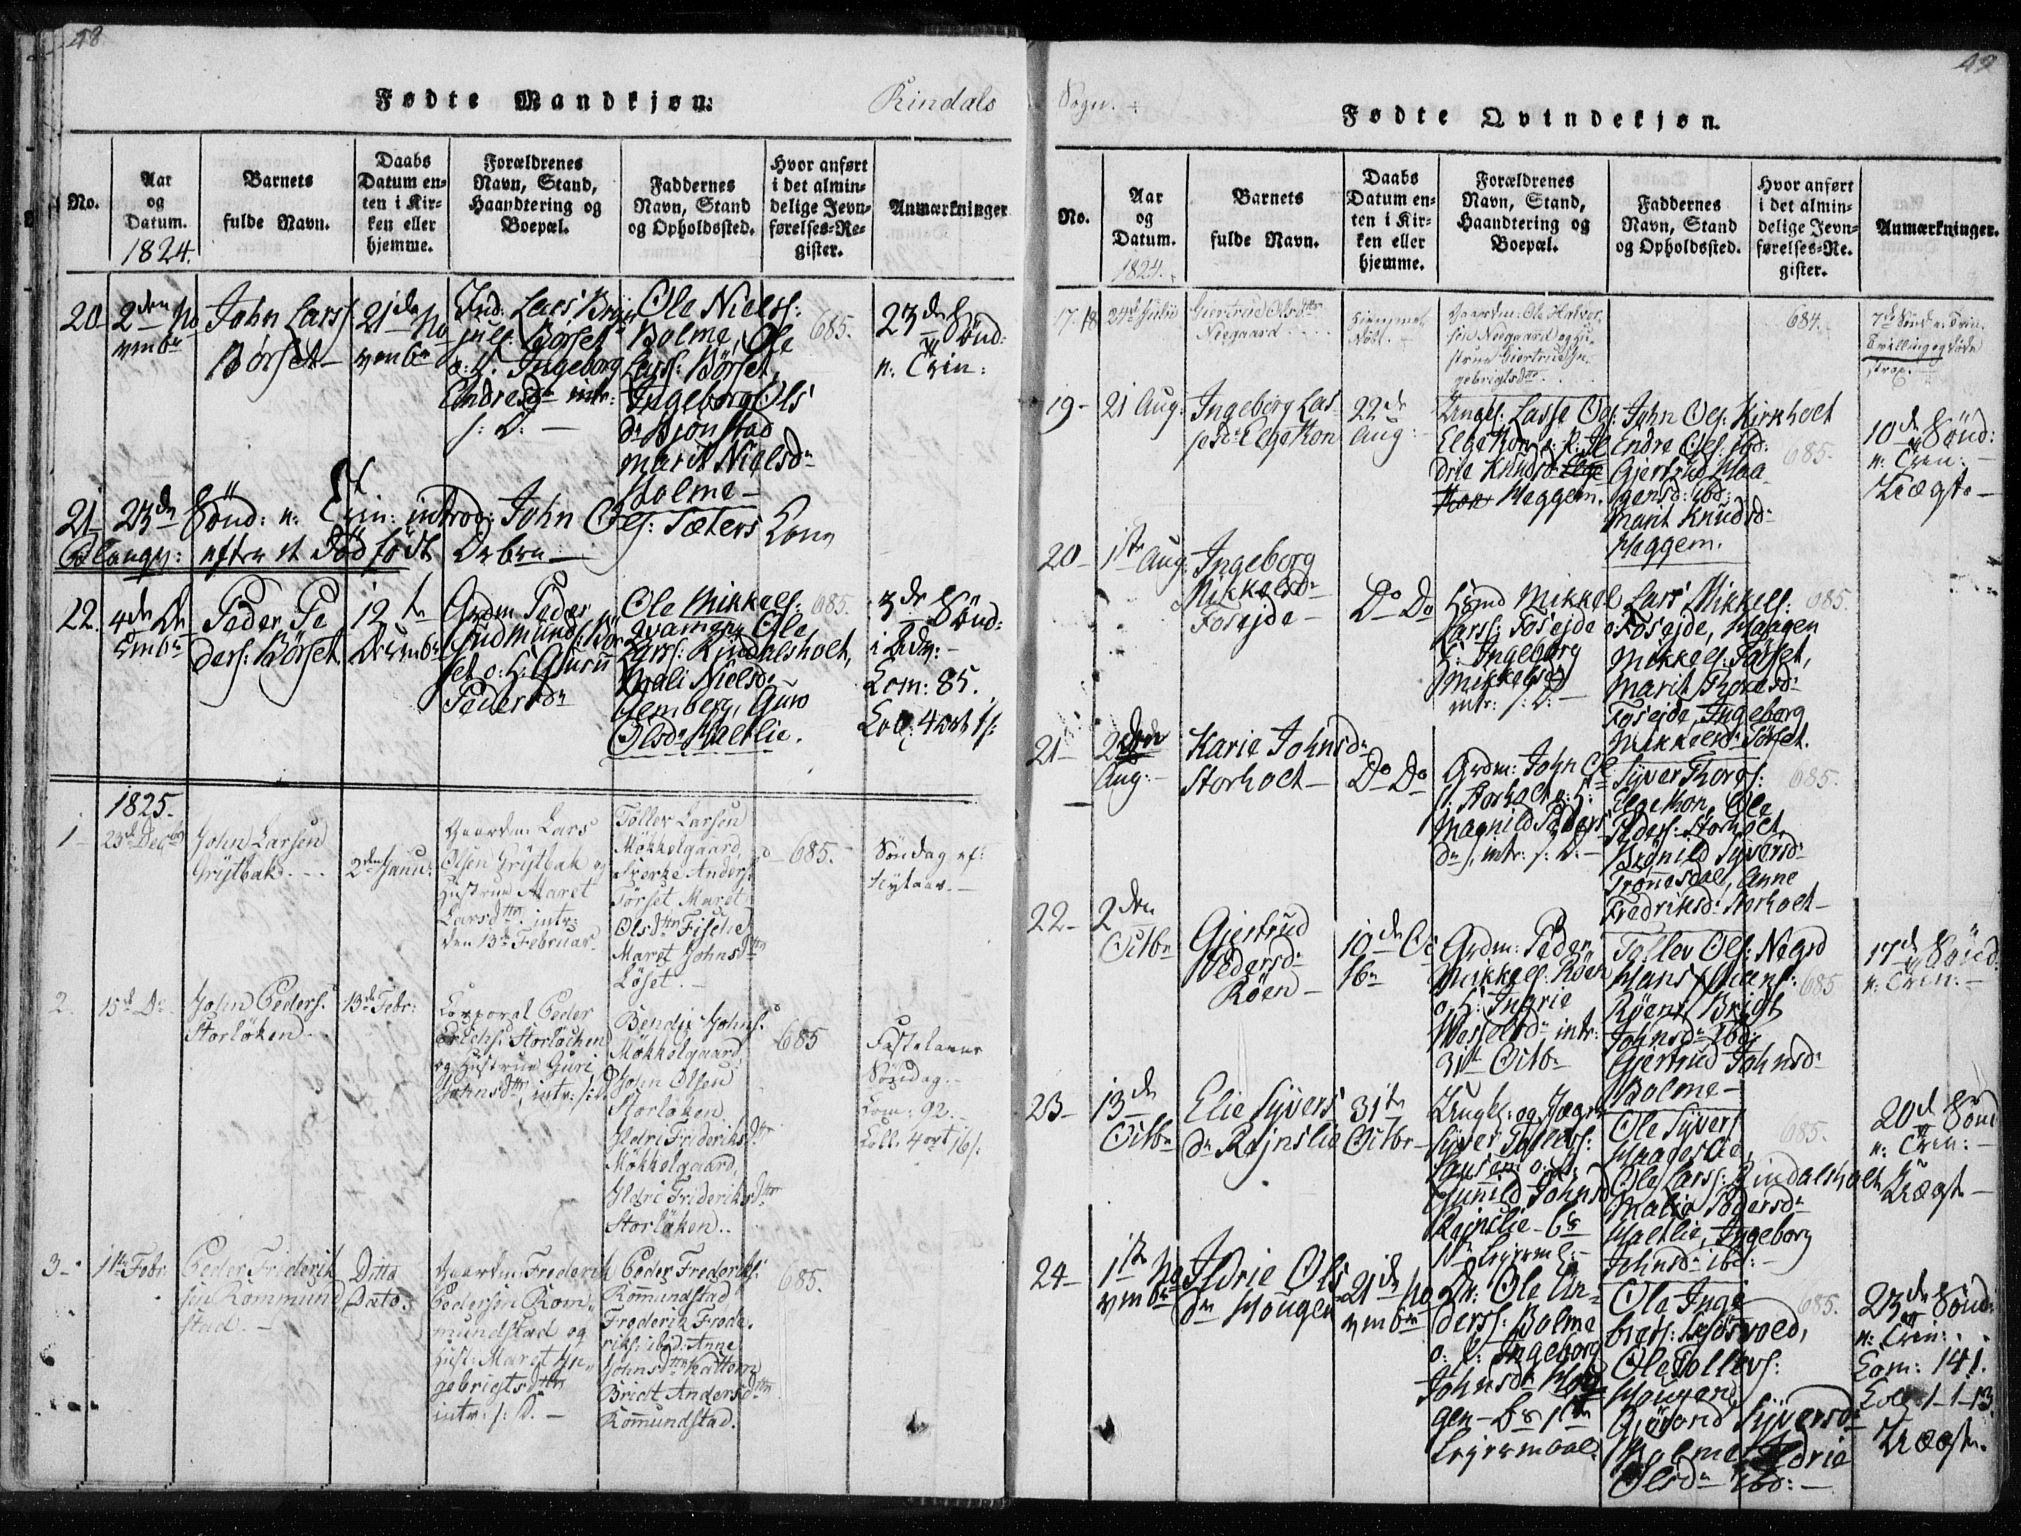 48.
Fødte Mandkjøn.
Rindals
No.
Aar
og
Datum.
1824.
Barnets
fulde Navn.
Daabs
Datum en-
ten i Kir-
ken eller
hjemme.
Forældrenes
Navn, Stand,
Haandtering og
Boepæl.
Faddernes
Navn, Stand
og Opholdssted.
Hvor anført
i det almin-
delige Jevn-
førelses-Re-
gister.
Anmærkninger
20
2den No
vmbr
John Larss
Børset
21de No
vmbr
Ind. Lars
Børset
o: H. Ingeborg
Andresdr intr:
s: D: —
Ole Nielss:
Bolme, Ole
Larss: Børset,
Ingeborg Ols
dr Bjønstad
Marit Nielsdr
Bolme —
685.
23de Sönd:
n: Trin:
21 23de Sönd: n: Trin: introd: John Ols: Sæters Kone
efter et Dödfödt Debrn —
22.
4de De
cmbr
Peder Pe
derss: Börset
12te
Decembr
Grdm. Peder
Gudmunds: Bör
set o: H: Guru
Pedersdr
Ole Mikkels:
Ole
Larss: Rindalsholt,
Mali Nielsdr
Guro
Olsdr Haltlie.
685.
3de Sönd:
i Advt: —
Com: 85.
Coll: 4 ort 1 s:
1825.
1
23de Decbr
John Larsen
Grÿtbak. . . .
2den Janu:
Gaardm: Lars
Olsen Grÿtbak og
Hustrue Maret
Larsdttr. intr:
den 13de Februar.
Toller Larsen
Møkkelgaard,
Sverke Anders:
Tørset Maret
Olsdttr Fiske
Maret Johnsdttr
Löset. —
685.
Söndag ef:
Nytaar. —
2.
15de Do
John Peders:
Storløken.
13de Febr:
Corporal Peder
Erichs: Storløchen
og Hustrue Guri
Johnsdttr, intr: s: D
Bendix Johns:
Møkkelgaard,
John Olsen
Storløken
Ildri Frideriksdttr
Møkkelgaard,
Ildri Frideriksdttr
Storløken..
685
Fastelavns
Söndag. —
Com: 92. —
Coll: 4 ort 16 s:
3 —
1ste Febr.
Peder Friderik
sen Rommund
stad. —
Ditto
Dato:
Gaardm: Frederik
Pedersen Rom-
mundstad og
Hust: Maret In-
gebrigtsdttr
intr: s: D. —
Peder Frederiks:
Romundstad
Frederik Frede-
riks: ibd: Anne
Johnsdttr
Bridt Andersdttr
Romundstad.
685.
49
Sogn.
Fødte Qvindekjøn.
No.
Aar
og
Datum.
1824.
Barnets
fulde Navn.
Daabs
Datum en-
ten i Kir-
ken eller
hjemme.
Forældrenes
Navn, Stand,
Haandtering og
Boepæl.
Faddernes
Navn, Stand
og Opholdssted.
Hvor anført
i det almin-
delige Jevn-
førelses-Re-
gister.
Anmærkninger.
17. 18
24de Julii
Giertrud Olsdttr
Negaard . . . .
hjemme-
döbt. —
Gaardm: Ole Halvor-
sen Negaard og Hu-
strue Giertrud In-
gebrigtsdttr. . . .
684.
7de Sönd: n: Trin.
Tvilling og döde
strax. —
19 —
21 Aug:
Ingeborg Las-
sedr Elgetton
22de
Aug: —
Ungk: Lasse Ols:
Elgetton o: P: Il
drie Knudsdr
Heggem.
John Ols: Kirkholt
Endre Ols: ibd:
Gjertrud Haa
gensd: ibd:
Marit Knudsdr
Heggem.
685.
10de Sönd:
n: Trin: —
Uægte —
20 —
1ste Aug:
Ingeborg
Mikkelsdr
Fosejde —
Do Do
Hsmd Mikkel
Larss: Fosejde o
H: Ingeborg
Mikkelsdr
intr: s: D: —
Lars Mikkels:
Fosejde, Haagen
Mikkels: Tørset,
Marit Thoresdr
Fosejde, Ingeborg
Mikkelsdr Tørset.
685.
21 —
2den
Aug: —
Karie Johnsdr
Storholt —
Do Do
Grdm: John Ol
s: Storholt o: H:
Magnild Peders
dr, intr: s: D. —
Syver Thorgs:
Elgetton, Ole
Peders: Storholt,
Brönild Syversdr
Trønnesdal, Anne
Fredriksdr Storholt —
685.
22 —
2den
Octbr
Gjertrud
Pedersdr
Röen —
10de Oc
tbr
Grdm: Peder
Mikkels: Röen
o: H: Ingrie
Wesselsdr intr:
31te Octbr
Tollev Ols: Negrd
Hans
Röen, Brigt
Johnsdr ibd:
Gjertrud Johnsdr
Bolme —
685
17de Sönd:
n: Trin: —
23 —
13de
Octbr
Elie Syvers
dr Rejnslie
31te
Octbr —
Ungk: og Jæger
Syver Tollevs:
o: P:
Gunild Johnsdr
Rejnslie —
Ole Syvers
Haageslie,
Ole Larss: Rindalsholt
Malia Pedersdr
Haltlie, Ingeborg
Johnsdr ibd: —
685.
20de Sönd
n: Trin: —
Uægte —
24 —
1ste No
vmbr
Ildrie Ols
dr Hougen
21de No
vmbr
Ole An-
derss: Bolme
o: P: Ingeborg
Johnsdr Hou
gen — 1ste
Lejermaal.
Ole Inge
brets: Lesovold,
Ole Tollevs:
Hougen,
Gjörand Syversdr
Bolme, Ildrie
Olsdr ibd: —
685.
23de Sönd:
n: Trin: .
Com: 141.
Coll: 1 — 1 — 13.
Uægte.